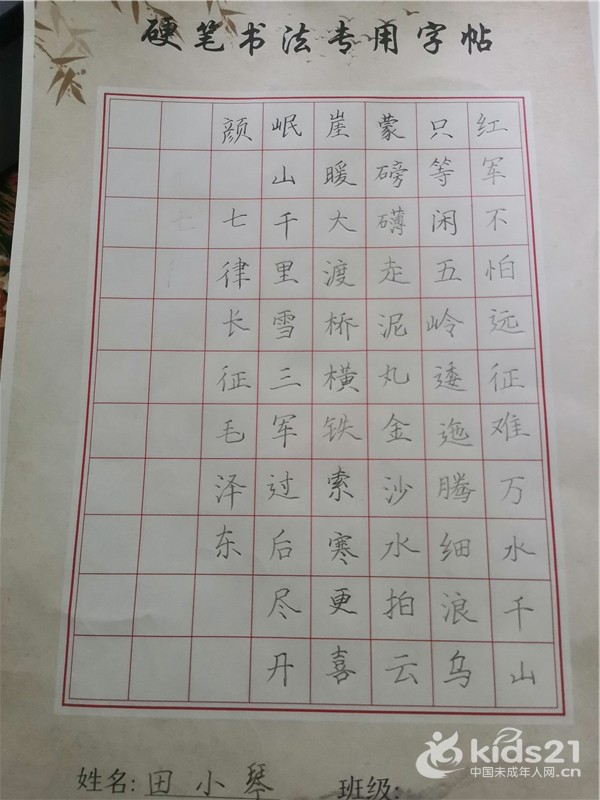 硬笔书法专用字帖
红军不怕远征难万水千山
只等闲五岭逶迤腾细浪乌
蒙磅礴走泥丸金沙水拍云
崖暖大渡桥横铁索寒更喜
岷山千里雪三军过后尽丹
颜 七律长征毛泽东
七
姓名:田小琴 班级:
kids21
中国未成年人网.cn